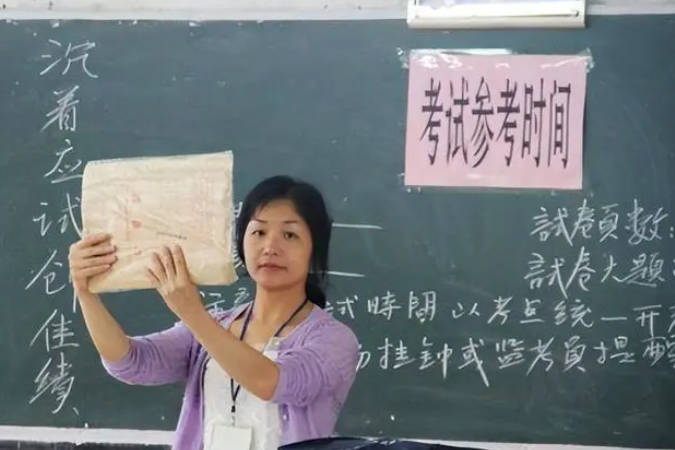 沉着应试创佳绩
考试参考时间
試卷頁數:
試卷大題
試時間以考点統一开
挂鈡或监考員提